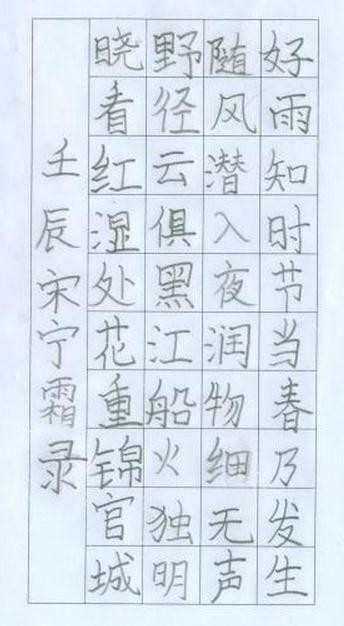 好雨知时节当春乃发生
随风潜入夜润物细无声
野径云俱黑江船火独明
晓看红湿处花重锦官城
壬辰宋宁霜录